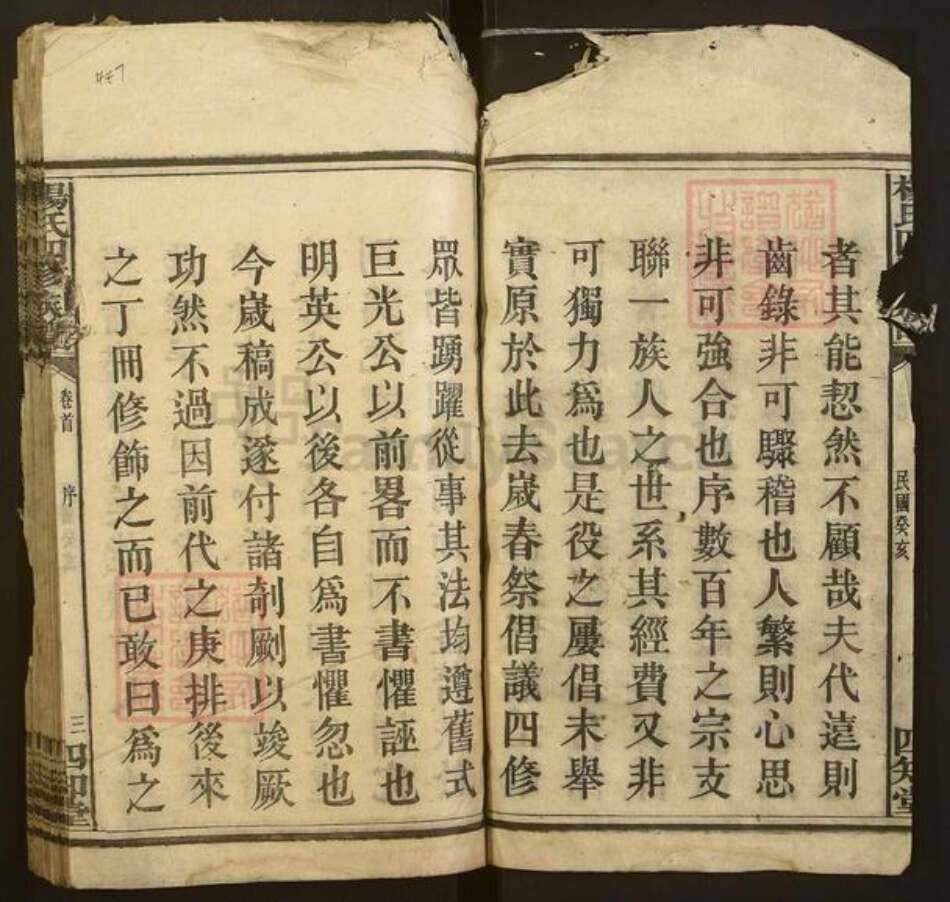 者其能恝然不顧哉夫代遠則
齒錄非可驟稽也人繁則心思
非可強合也序數百年之宗支
聯一族人之世系其經費又非
可獨力為也是役之屢倡未舉
實原於此去歲春祭倡議四修
眾皆踴躍從事其法均遵舊式
巨光公以前畧而不書懼誣也
明英公以後各自為書懼忽也
今歲稿成遂付諸剞劂以竣厥
功然不過因前代之庚排後來
之丁冊修飾之而已敢曰為之
楊氏四修族譜
卷首
序
三
四知堂
民國癸亥
四知堂
447
FamilySearch